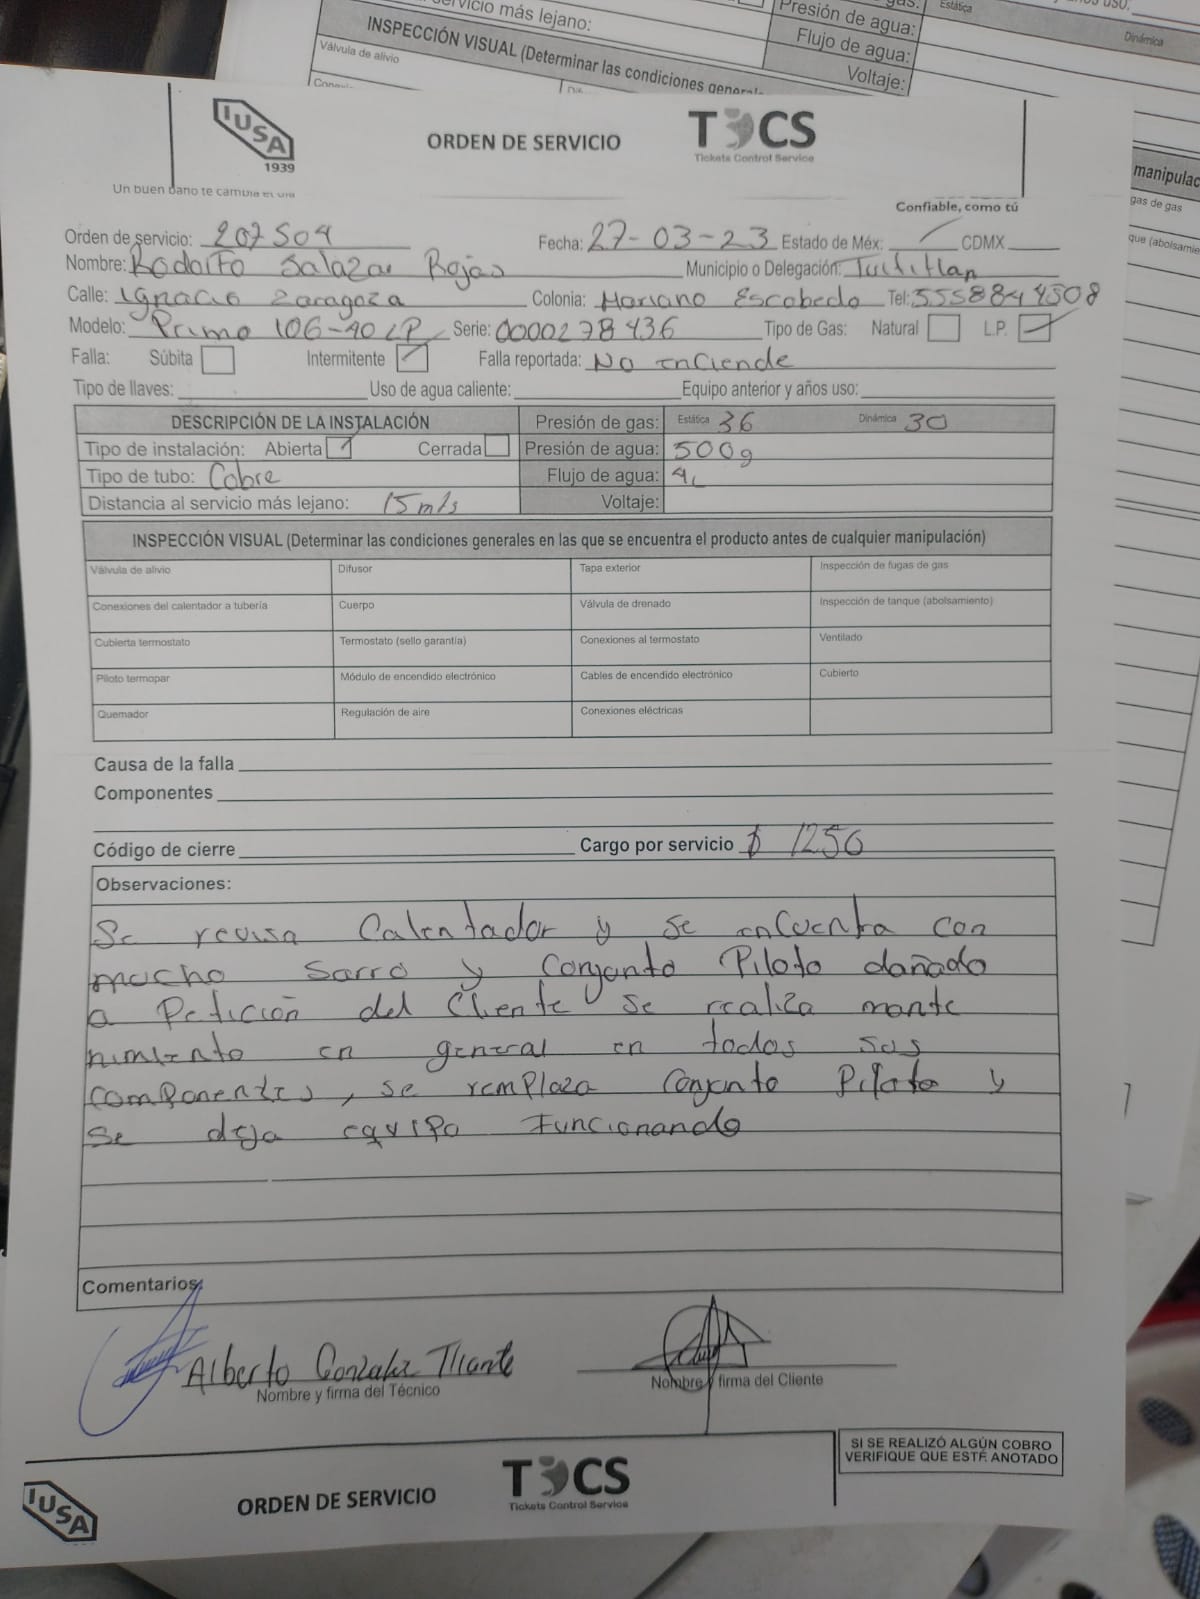 servicio más lejano:
Presión de agua:
Estática
Flujo de agua:
Dinámica
INSPECCIÓN VISUAL (Determinar las condiciones general
Voltaje:
Válvula de alivio
manipulac
gas de gas
que (abolsamie
IUSA
1939
ORDEN DE SERVICIO
TCS
Tickets Control Service
Un buen baño te cambia el día
Confiable, como tú
Orden de servicio: 207504 Fecha: 27-03-23 Estado de Méx: CDMX
Nombre: Rodolfo Salazar Rojas Municipio o Delegación: Tultitlan
Calle: Ignacio Zaragoza Colonia: Mariano Escobedo Tel: 5558844508
Modelo: Primo 106-40 LP Serie: 0000278436 Tipo de Gas: Natural L.P.
Falla: Súbita Intermitente Falla reportada: No enciende
Tipo de llaves: Uso de agua caliente: Equipo anterior y años uso:
DESCRIPCIÓN DE LA INSTALACIÓN Presión de gas: Estática 36 Dinámica 30
Tipo de instalación: Abierta Cerrada Presión de agua: 500g
Tipo de tubo: Cobre Flujo de agua: 4L
Distancia al servicio más lejano: 15 mts Voltaje:
INSPECCIÓN VISUAL (Determinar las condiciones generales en las que se encuentra el producto antes de cualquier manipulación)
Válvula de alivio Difusor Tapa exterior Inspección de fugas de gas
Conexiones del calentador a tubería Cuerpo Válvula de drenado Inspección de tanque (abolsamiento)
Cubierta termostato Termostato (sello garantía) Conexiones al termostato Ventilado
Piloto termopar Módulo de encendido electrónico Cables de encendido electrónico Cubierto
Quemador Regulación de aire Conexiones eléctricas
Causa de la falla
Componentes
Código de cierre Cargo por servicio $ 1250
Observaciones:
Se revisa Calentador y se encuentra con
mucho Sarro y Conjunto Piloto dañado
a Petición del Cliente se realiza mante
nimiento en general en todos sus
componentes, se remplaza Conjunto Piloto y
se deja equipo Funcionando
Comentarios:
Alberto Gonzalez
Nombre y firma del Técnico
Nombre y firma del Cliente
SI SE REALIZÓ ALGÚN COBRO
VERIFIQUE QUE ESTÉ ANOTADO
IUSA
ORDEN DE SERVICIO
TCS
Tickets Control Service